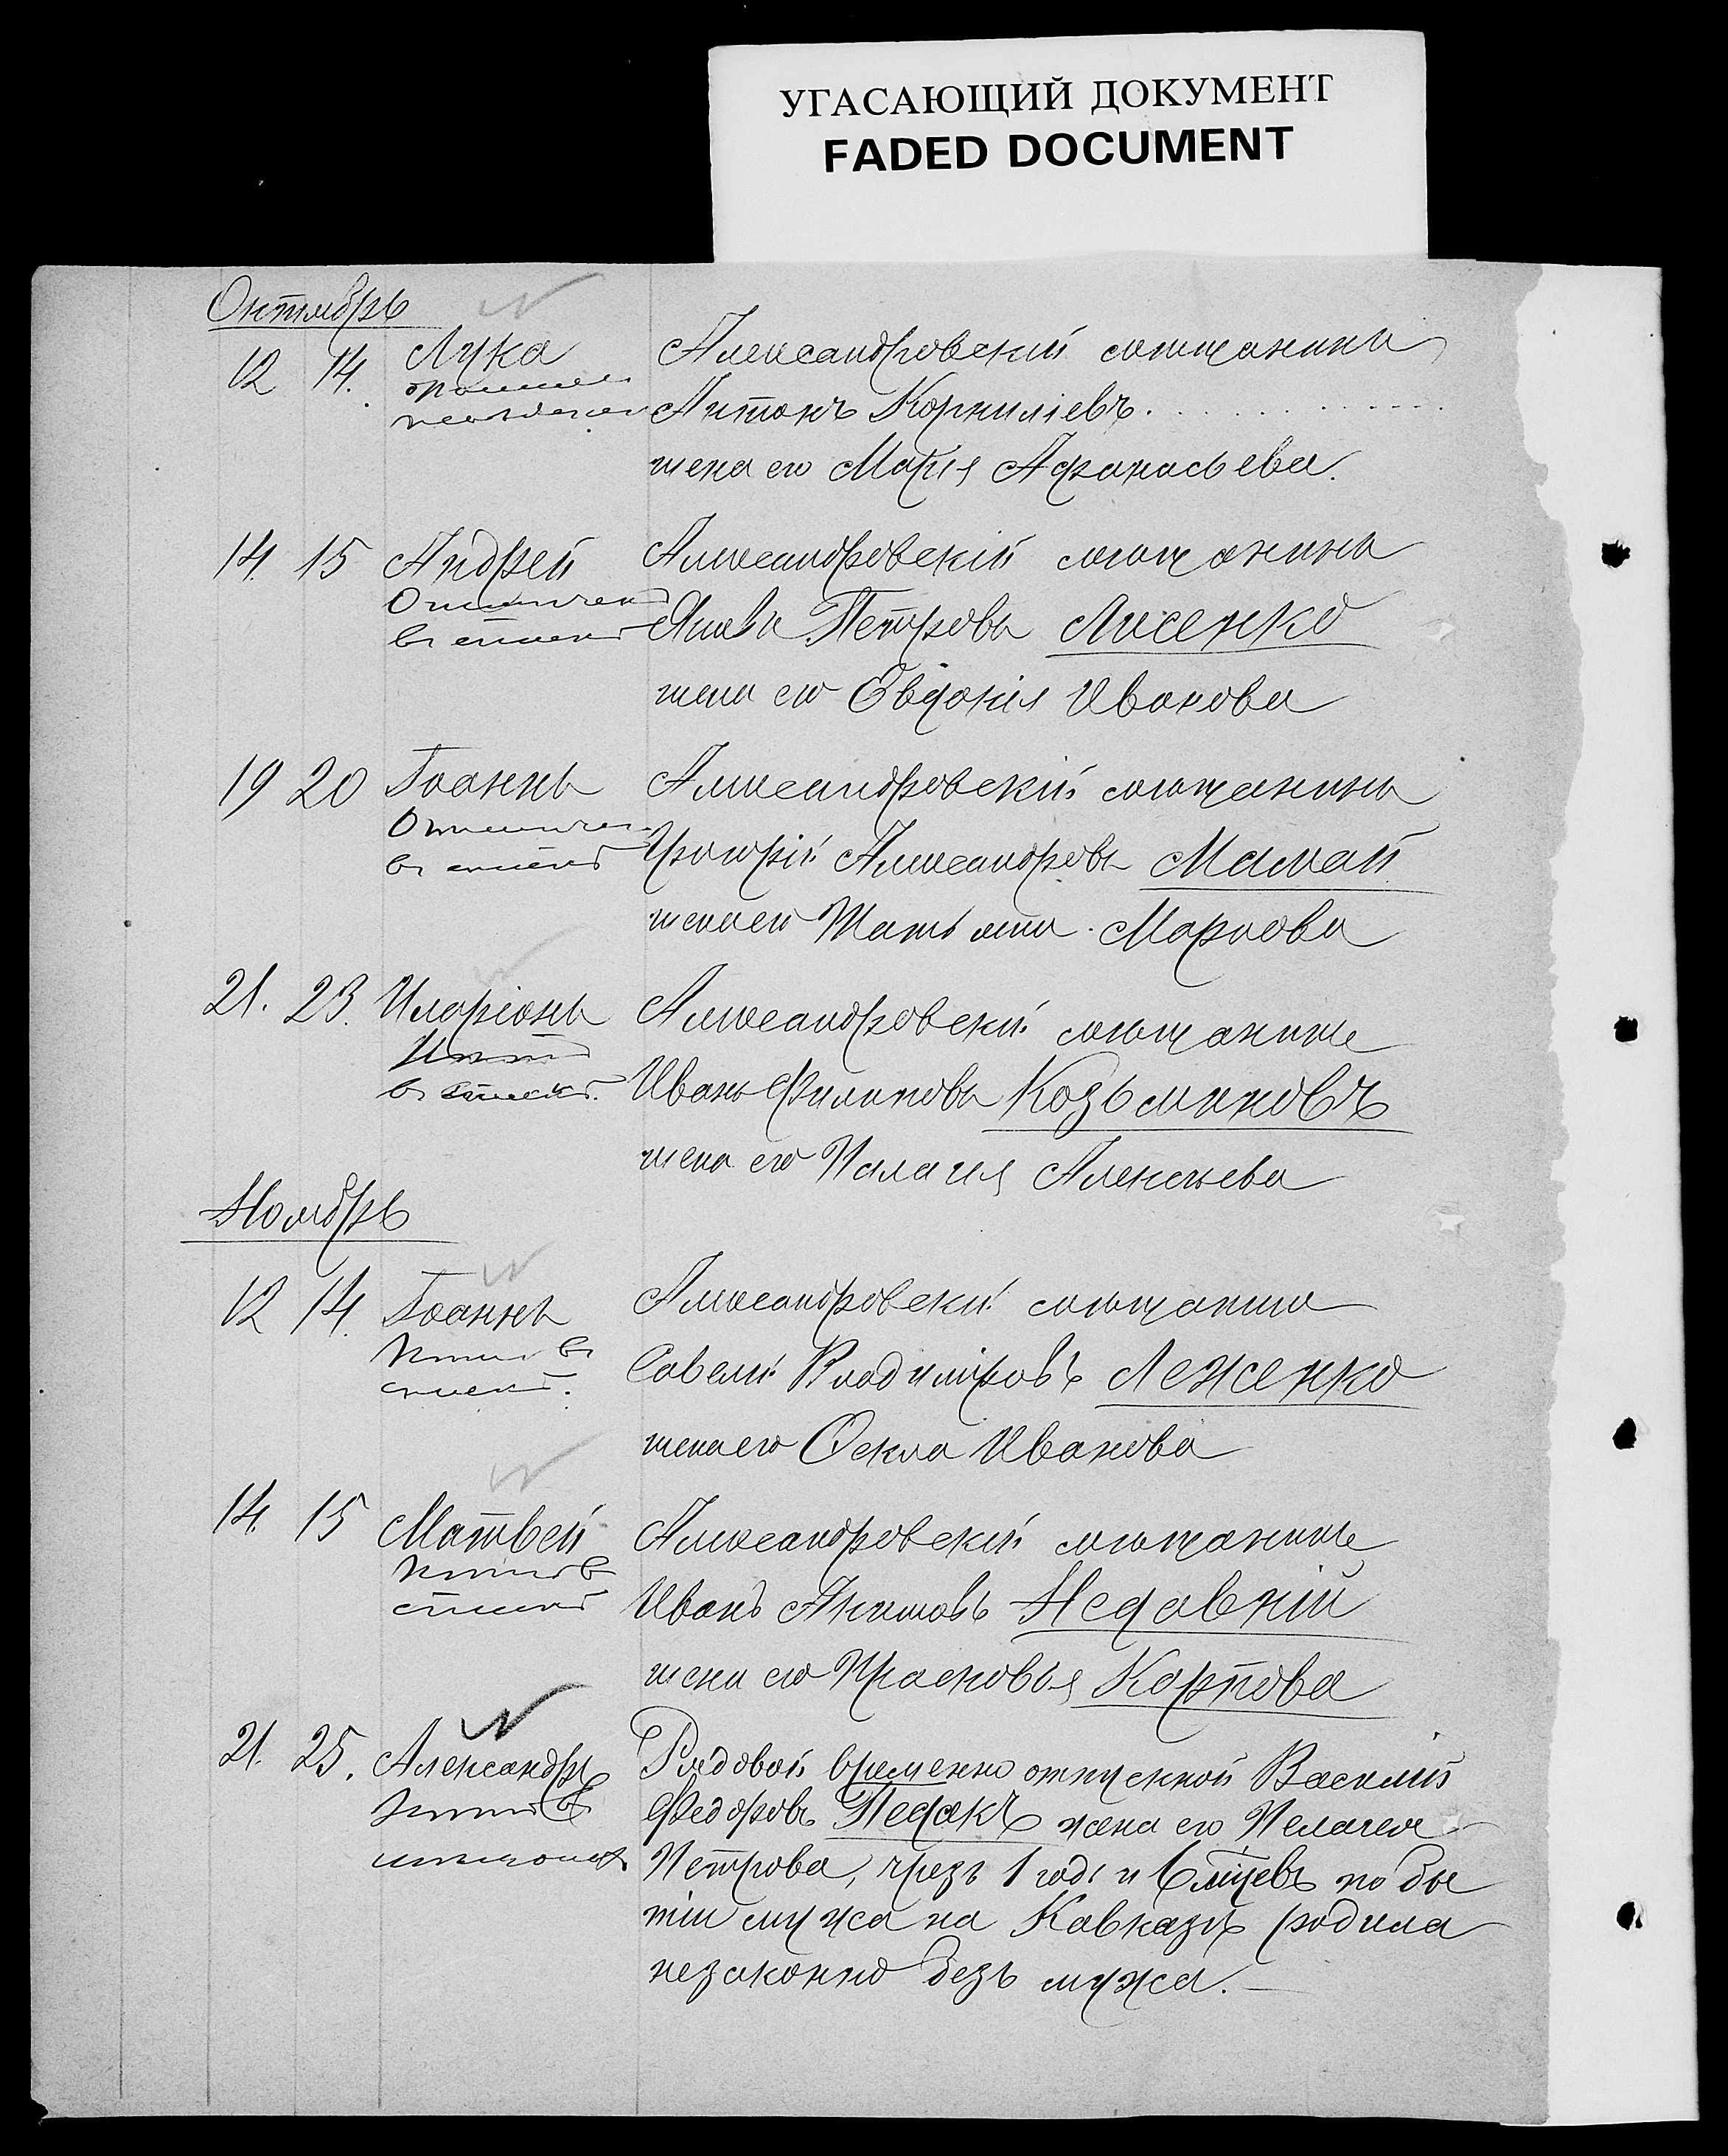 УГАСАЮЩИЙ ДОКУМЕНТ
FADED DOCUMENT
Октябрь
12 14. Лука Александровский мещанинъ
Антонъ Корниліевъ. . . . . . . . . . . .
жена его Марія Афанасьева.
14. 15 Андрей Александровскій мещанинъ
Отмечен Яковъ Петровъ Лисенко
въ списке жена его Евдокія Иванова
19 20 Іоаннъ Александровскій мещанинъ
Отмечен Григорій Александровъ Мамай
въ списке жена его Татьяна Маркова
21. 23. Иларіонъ Александровскій мещанинъ
въ списке. Иванъ Филиповъ Козьминовъ
жена его Палагія Алексѣева
Ноябрь
12 14. Іоаннъ Александровскій мещанинъ
Савелій Владиміровъ Леженко
жена его Ѳекла Иванова
14. 15 Матвей Александровскій мещанинъ
Иванъ Акимовъ Недавній
жена его Прасковья Карпова
21. 25. Александръ Рядовой временно отпускной Василій
Федоровъ Педакъ жена его Пелагея
Петрова, чрезъ 1 годъ и 6 мцевъ по бы
тіи мужа на Кавказѣ родила
незаконно безъ мужа.